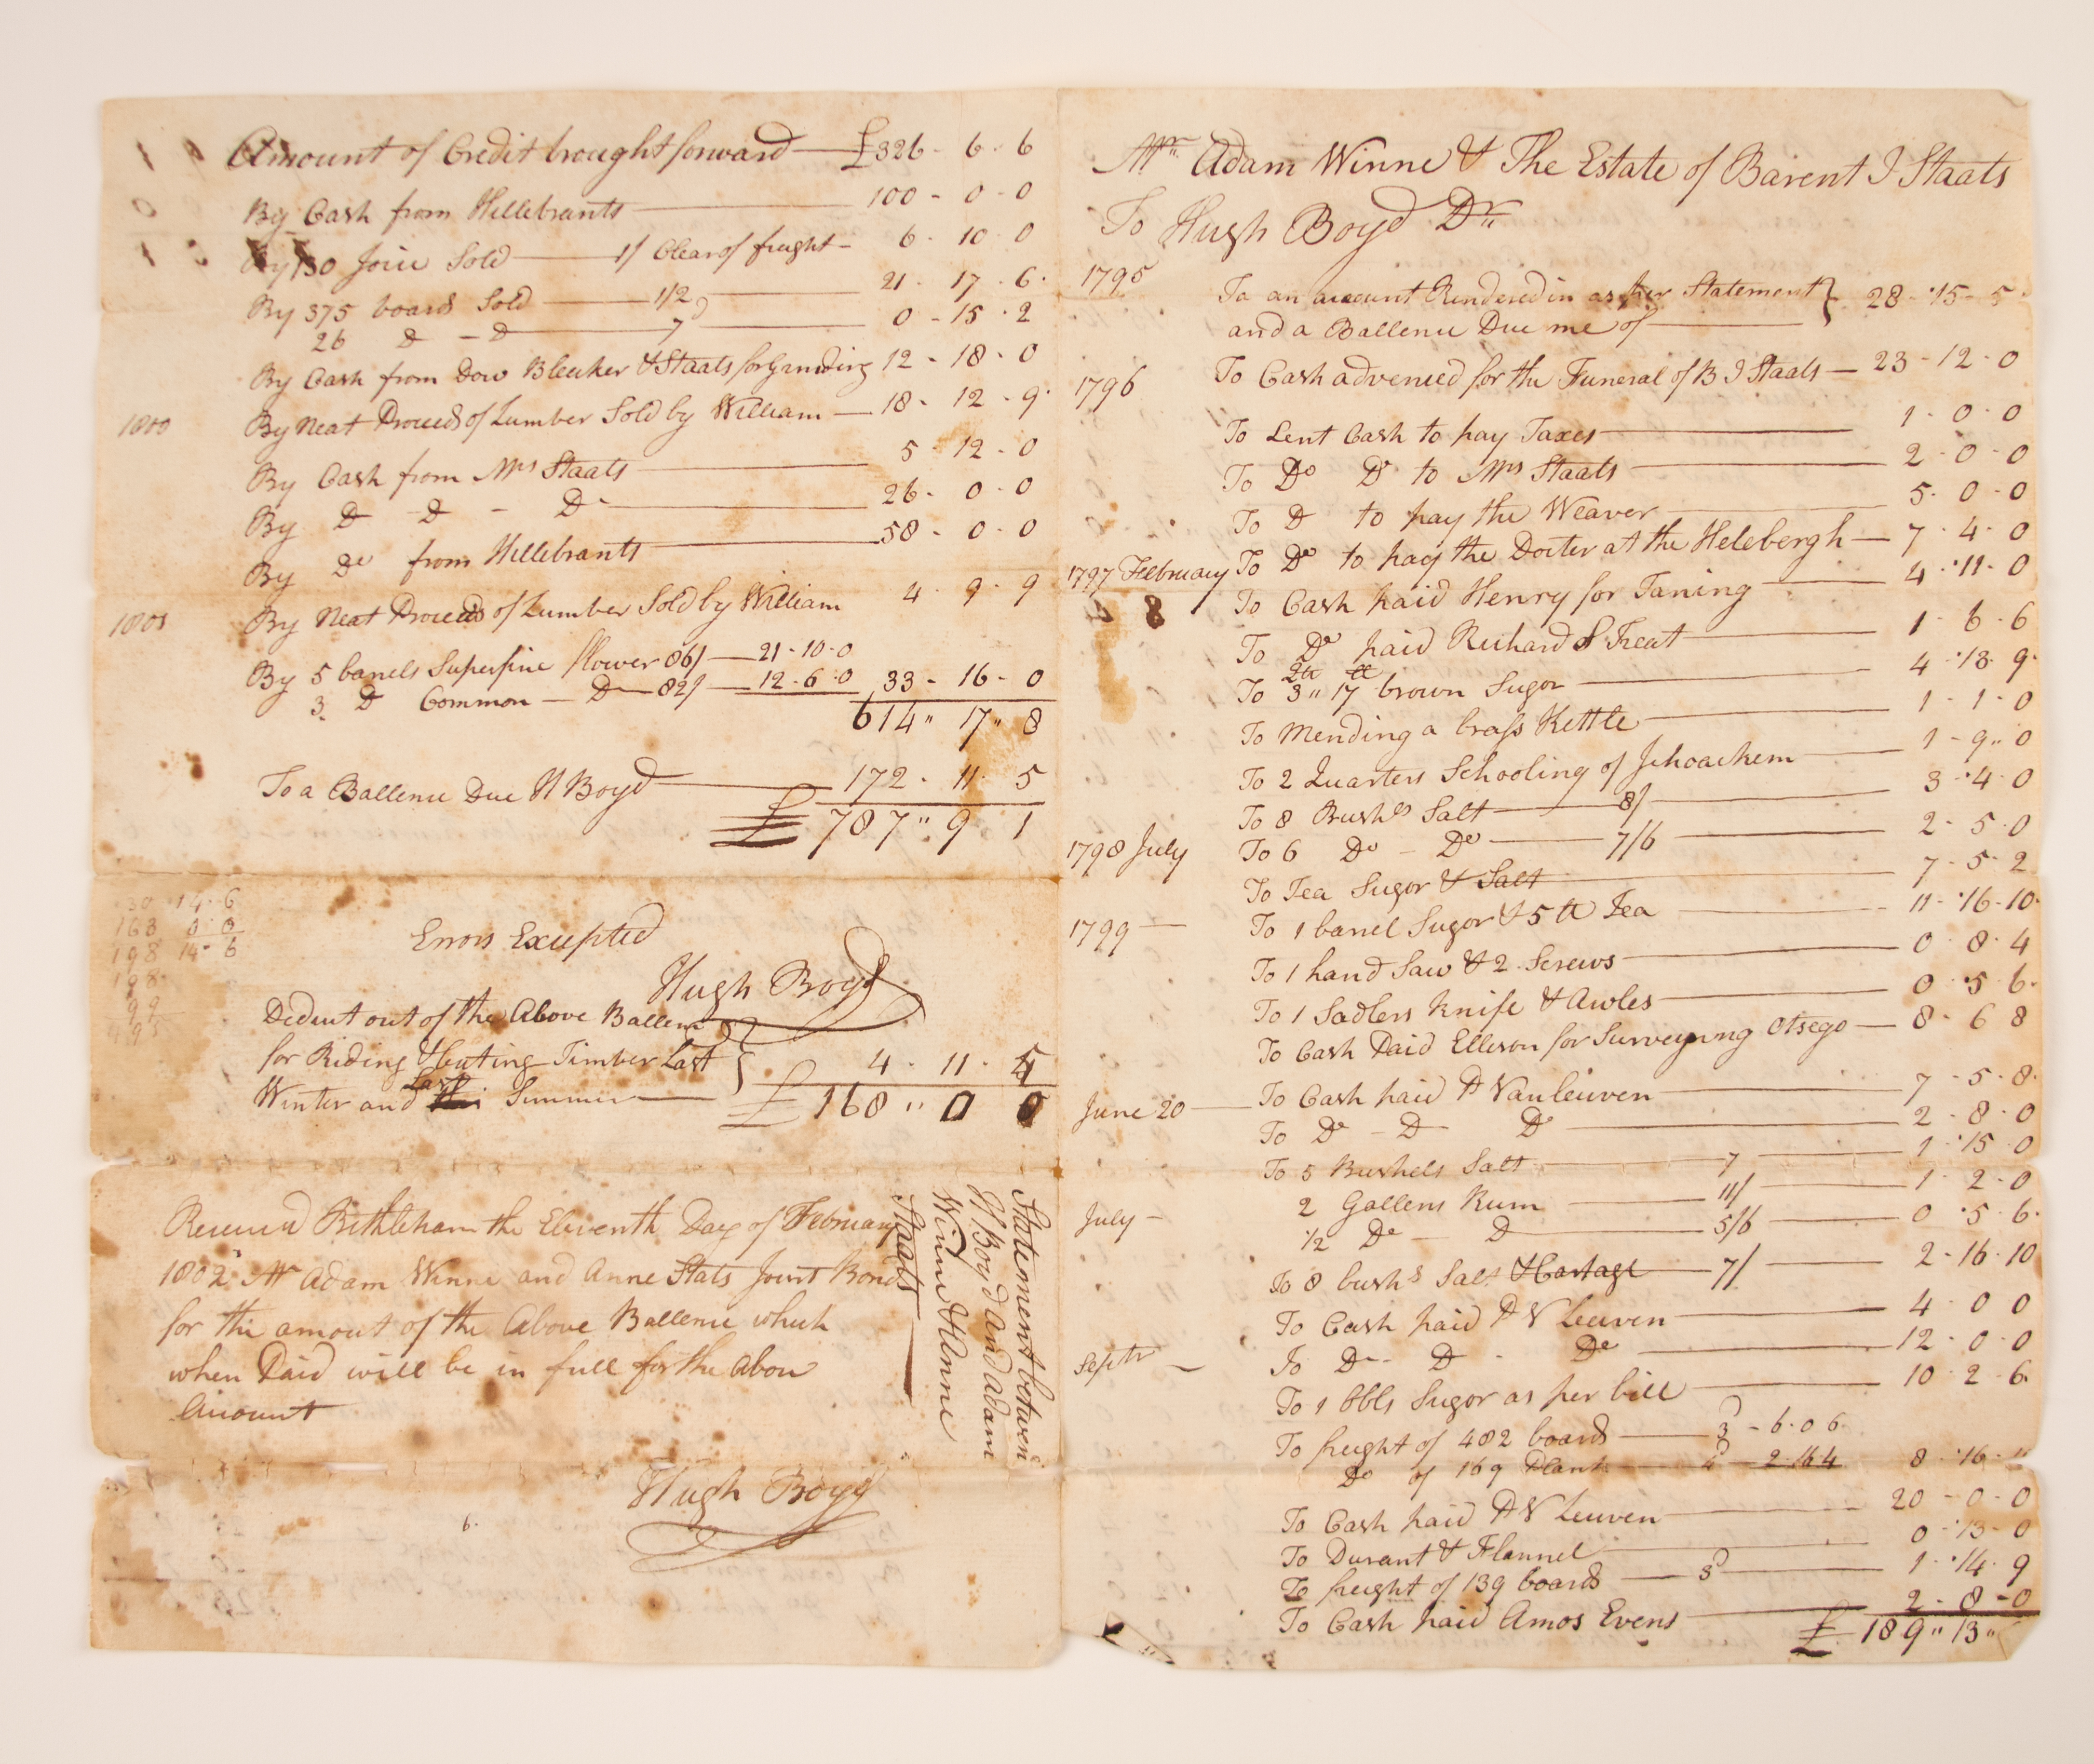 Amount of Credit brought forward — £326 - 6 - 6
By Cash from Hillebrants — 100 - 0 - 0
By 130 Joice Sold — 1/ Clear of freight - 6 - 10 - 0
By 375 boards Sold — 1/2 — 21 - 17 - 6
26 Do - Do — 7d — 0 - 15 - 2
By Cash from Dow Bleeker & Staats for Grinding 12 - 18 - 0
1800 By Neat Proceeds of Lumber Sold by William — 18 - 12 - 9
By Cash from Mrs Staats — 5 - 12 - 0
By Do Do - Do — 26 - 0 - 0
By Do from Hillebrants — 58 - 0 - 0
1801 By Neat Proceeds of Lumber Sold by William 4 - 9 - 9
By 5 barrels Superfine flower 86/ — 21 - 10 - 0
3 Do Common — Do — 82/ — 12 - 6 - 0 33 - 16 - 0
614 " 17 " 8
To a Ballence Due H Boyd — 172 - 11 - 5
£ 787 " 9 1
30 14 - 6
168 0 - 0
198 14 - 6
198
99
Errors Excepted
Hugh Boyd
Deduct out of the Above Ballence
for Riding & Cuting Timber Last } 4 - 11 - 5
Winter and Last Summer — £ 168 " 0 0
Received Bethleham the Eleventh Day of February
1802 Mr Adam Winne and Anne Stats Joint Bond
for the amount of the Above Ballence which
when Paid will be in full for the Above
Amount
Hugh Boyd
6.
Statement between
H. Boyd and Adam
Winne & Anne
Staats
Mr Adam Winne & The Estate of Barent J Staats
To Hugh Boyd Dr
1795 To an account Rendered in as per Statement
and a Ballence Due me of — } 28 - 15 - 5
1796 To Cash advenced for the Funeral of B J Staats — 23 - 12 - 0
To Lent Cash to pay Taxes — 1 - 0 - 0
To Do Do to Mrs Staats — 2 - 0 - 0
To Do to pay the Weaver — 5 - 0 - 0
1797 February To Do to pay the Docter at the Helebergh — 7 - 4 - 0
To Cash paid Henry for Taning — 4 - 11 - 0
8 To Do paid Richard S Treat — 1 - 6 - 6
To 3 qr " 17 lb brown Sugor — 4 - 13 - 9
To Mending a brass Kettle — 1 - 1 - 0
To 2 Quarters Schooling of Jehoachem — 1 - 9 " 0
To 8 Bushls Salt — 8/ — 3 - 4 - 0
1798 July To 6 Do - Do — 7/6 — 2 - 5 - 0
To Tea Sugor & Salt — 7 - 5 - 2
1799 — To 1 barrel Sugor & 5 lb Tea — 11 - 16 - 10
To 1 hand Saw & 2 Screws — 0 - 8 - 4
To 1 Sadlers Knife & Awles — 0 - 5 - 6
To Cash Paid Ellison for Surveyning Otsego — 8 - 6 8
June 20 — To Cash paid P Vanleuven — 7 - 5 - 8
To Do - Do Do — 2 - 8 - 0
To 5 Bushels Salt — 7 — 1 - 15 - 0
July - 2 Gallens Rum — 11/ — 1 - 2 - 0
1/2 Do — Do — 5/6 — 0 - 5 - 6
To 8 bushs Salt & Cartage — 7/ — 2 - 16 - 10
To Cash paid P V Leuven — 4 - 0 0
Septr — To Do - Do - Do — 12 - 0 - 0
To 1 bbls Sugor as per bill — 10 - 2 - 6
To freight of 482 boards — 3d - 6 - 0 6
Do of 169 Plank — 4d — 2 - 16 - 4 8 - 16 - "
To Cash paid P V Leuven — 20 - 0 - 0
To Durant & Flannel — 0 - 13 - 0
To freight of 139 boards — 3d — 1 - 14 - 9
To Cash paid Amos Evens — 2 - 8 - 0
£ 189 " 13 "